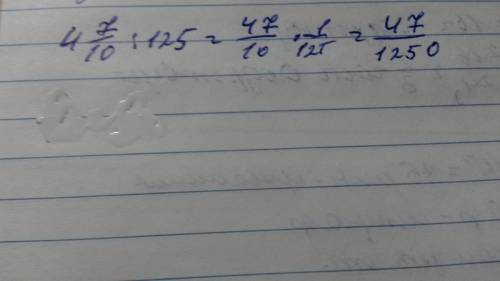 4 7/10 : 125 = 47/10 · 1/125 = 47/1250